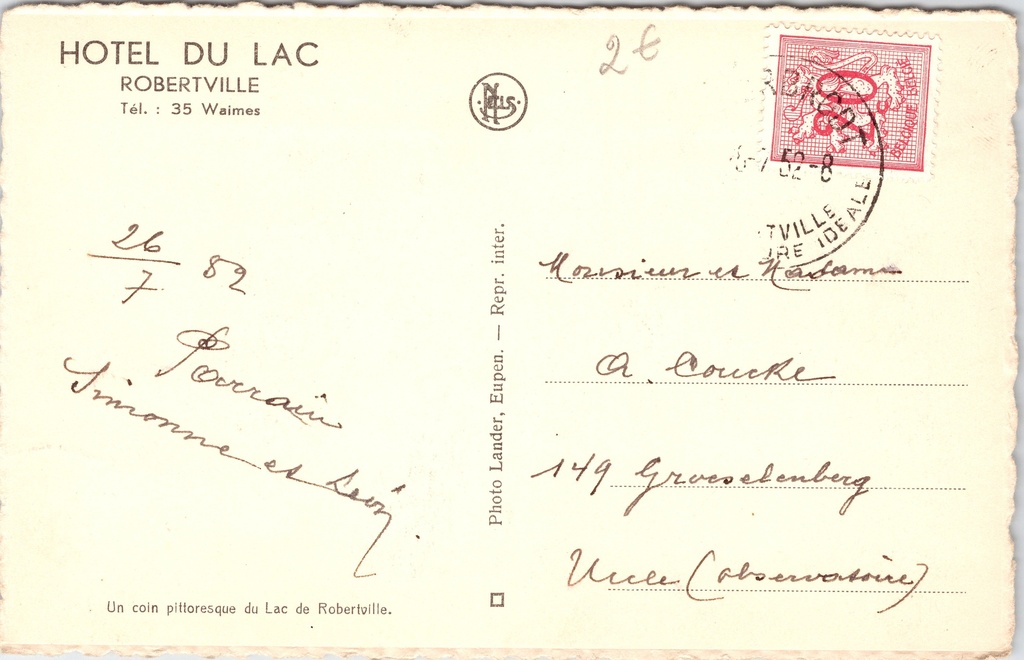 HOTEL DU LAC
ROBERTVILLE
Tél. : 35 Waimes
2€
BELGIQUE BELGIE
52-8
TVILLE
IDEALE
26/7 52
Parrain
Simonne et
Photo Lander, Eupen. — Repr. inter.
Monsieur et Madame
A. Coucke
149 Groeselenberg
Uccle (observatoire)
Un coin pittoresque du Lac de Robertville.